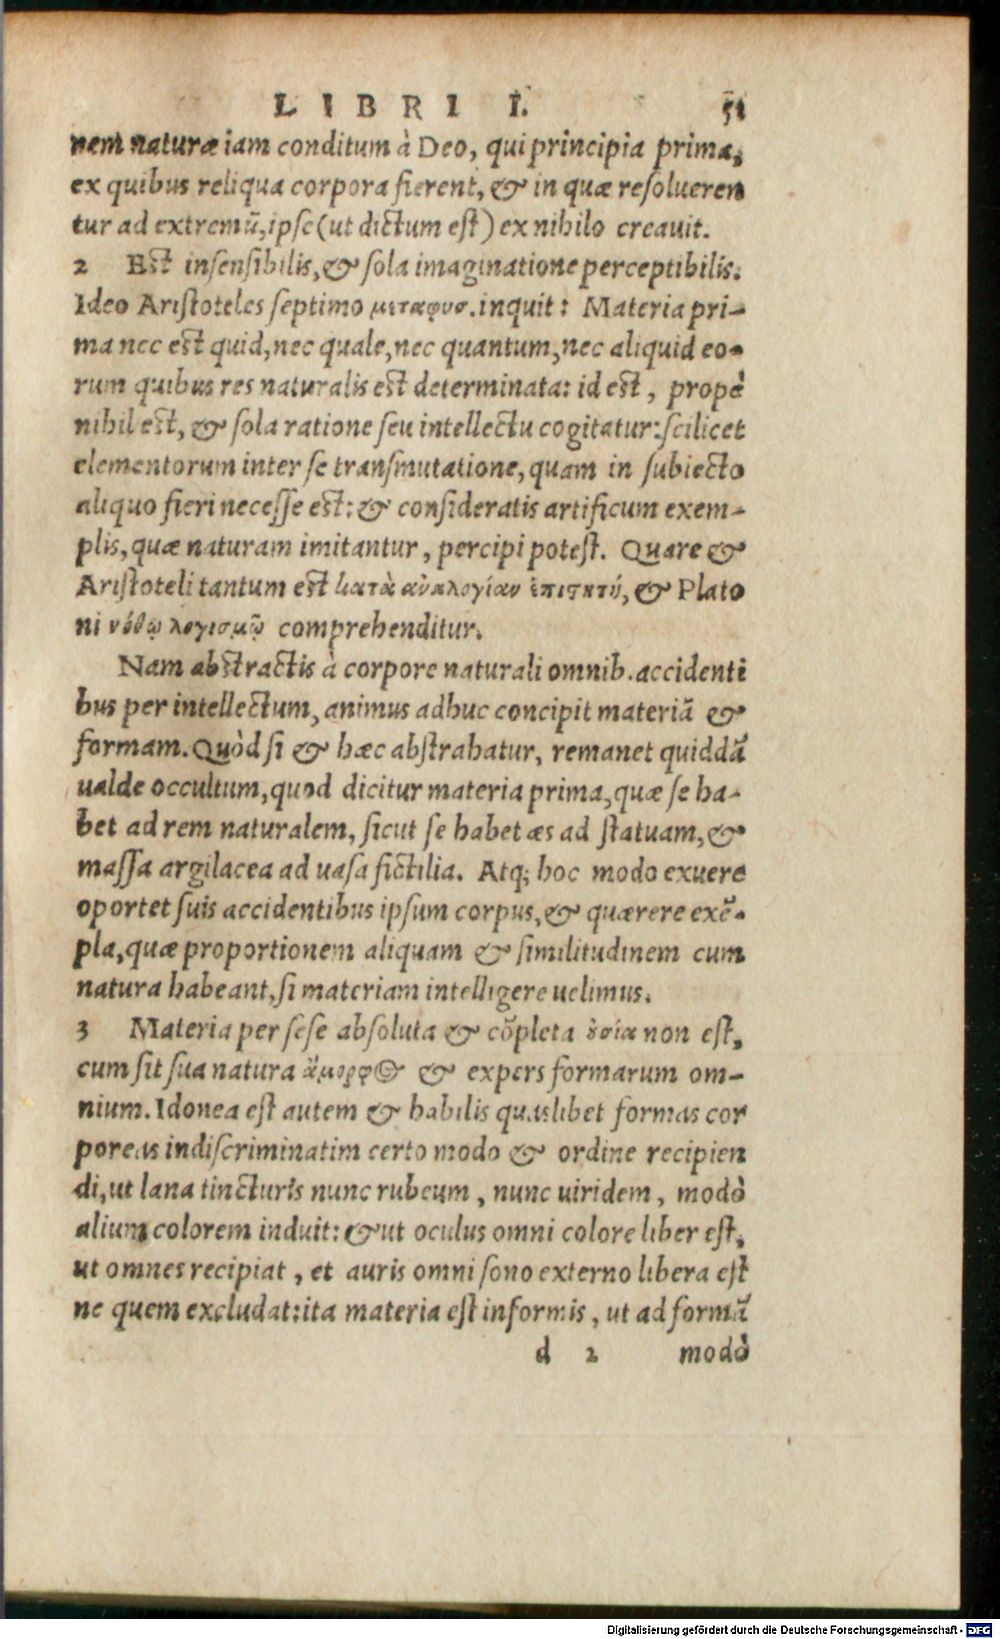 LIBRI I. 51
nem naturæ iam conditum à Deo, qui principia prima,
ex quibus reliqua corpora fierent, & in quæ resolueren
tur ad extremū, ipse (ut dictum est) ex nihilo creauit.
2 Est insensibilis, & sola imaginatione perceptibilis.
Ideo Aristoteles septimo μεταφυσ. inquit: Materia pri-
ma nec est quid, nec quale, nec quantum, nec aliquid eo-
rum quibus res naturalis est determinata: id est, propè
nihil est, & sola ratione seu intellectu cogitatur: scilicet
elementorum inter se transmutatione, quam in subiecto
aliquo fieri necesse est: & consideratis artificum exem-
plis, quæ naturam imitantur, percipi potest. Quare &
Aristoteli tantum est κατὰ ἀναλογίαν ἐπιστητή, & Plato
ni νόθῳ λογισμῷ comprehenditur.
Nam abstractis à corpore naturali omnib. accidenti
bus per intellectum, animus adhuc concipit materiā &
formam. Quòd si & hæc abstrahatur, remanet quiddā
ualde occultum, quod dicitur materia prima, quæ se ha-
bet ad rem naturalem, sicut se habet æs ad statuam, &
massa argilacea ad uasa fictilia. Atq; hoc modo exuere
oportet suis accidentibus ipsum corpus, & quærere exē-
pla, quæ proportionem aliquam & similitudinem cum
natura habeant, si materiam intelligere uelimus.
3 Materia per sese absoluta & cōpleta ȣσία non est,
cum sit sua natura ἄμορφος & expers formarum om-
nium. Idonea est autem & habilis quaslibet formas cor
poreas indiscriminatim certo modo & ordine recipien
di, ut lana tincturis nunc rubeum, nunc uiridem, modò
alium colorem induit: & ut oculus omni colore liber est,
ut omnes recipiat, et auris omni sono externo libera est
ne quem excludat: ita materia est informis, ut ad formā
d 2 modò
Digitalisierung gefördert durch die Deutsche Forschungsgemeinschaft - DFG